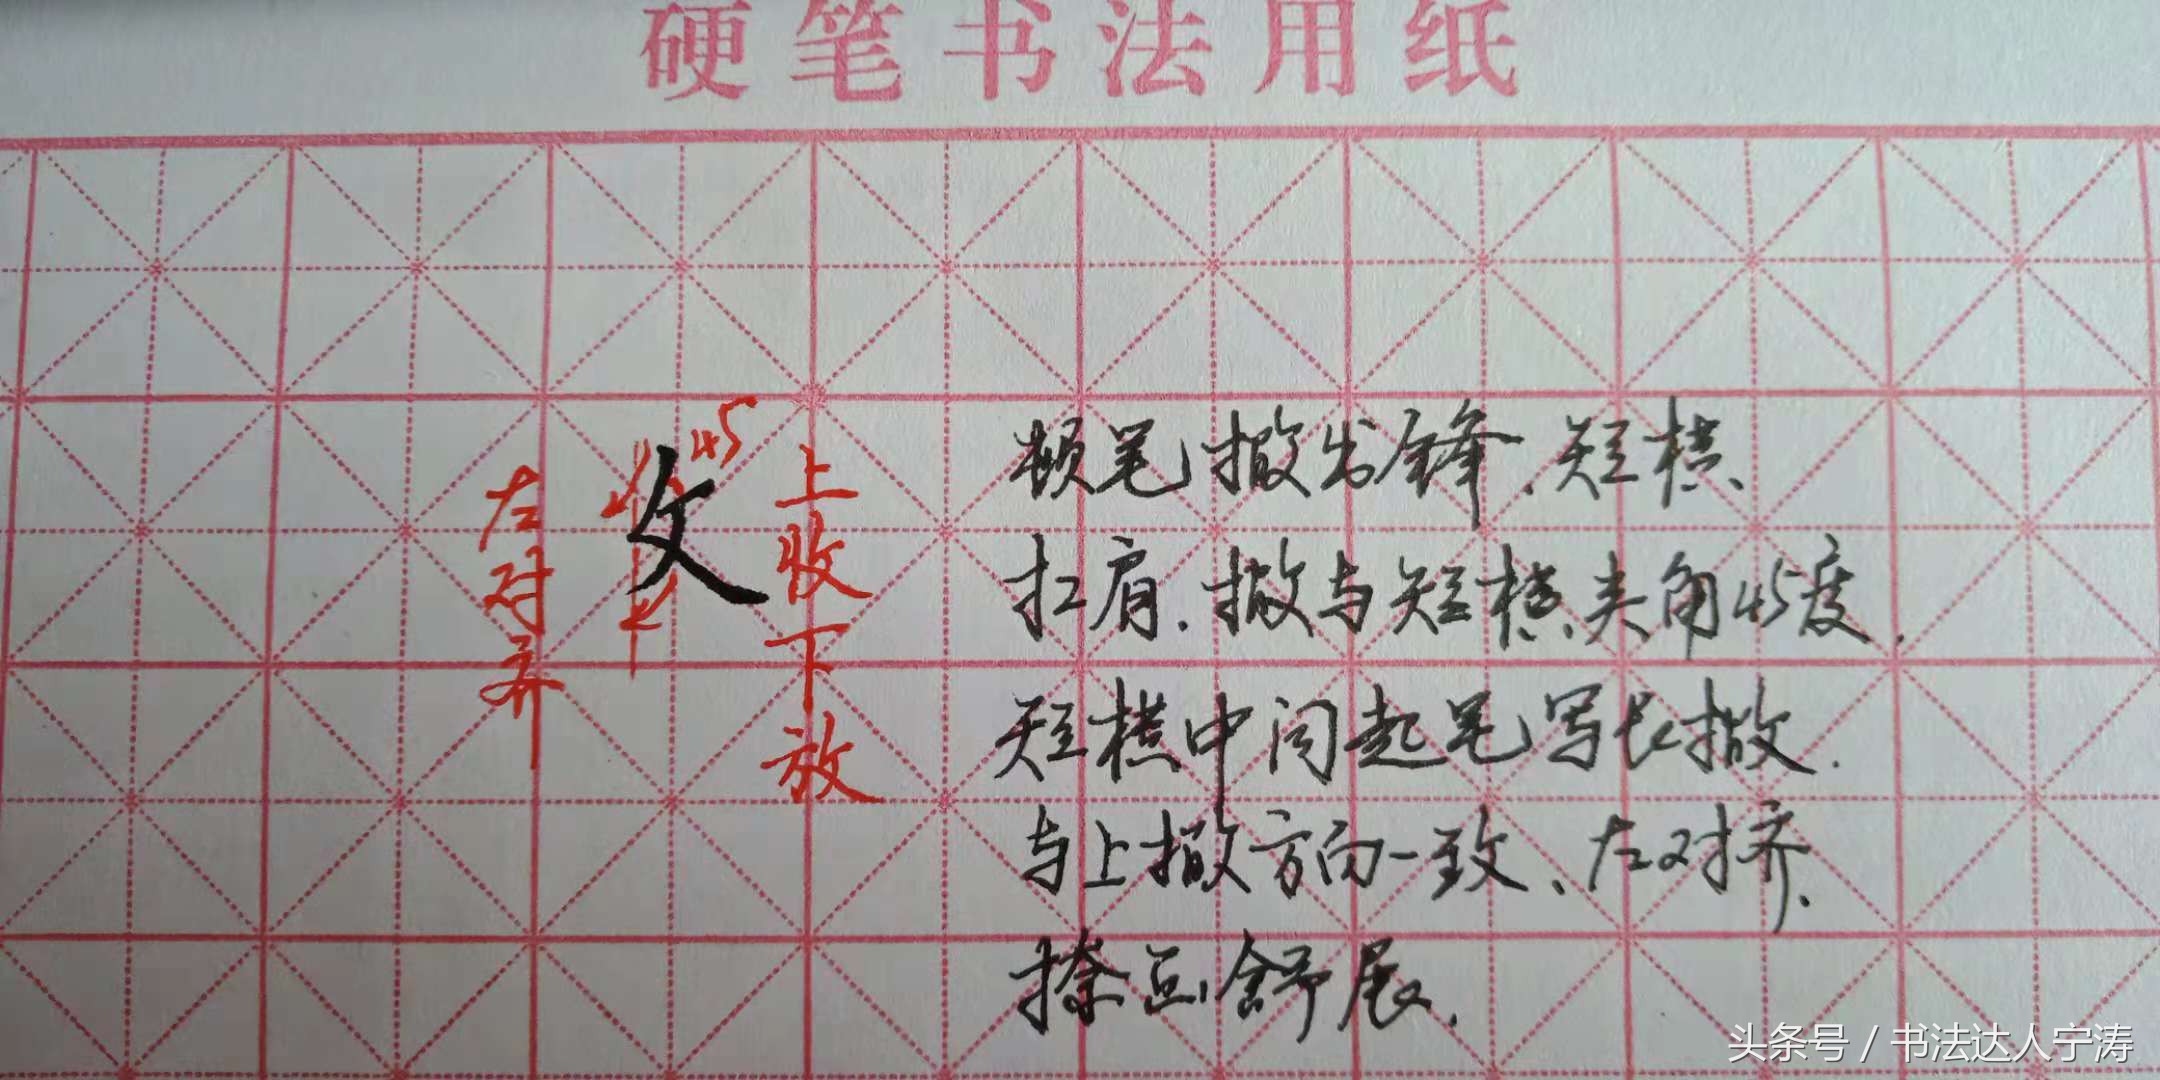 硬笔书法用纸
45
攵
左对齐
上收下放
顿笔撇出锋、短横、
扛肩.撇与短横夹角45度.
短横中间起笔写长撇.
与上撇方向一致、左对齐.
捺画舒展.
头条号 / 书法达人宁涛